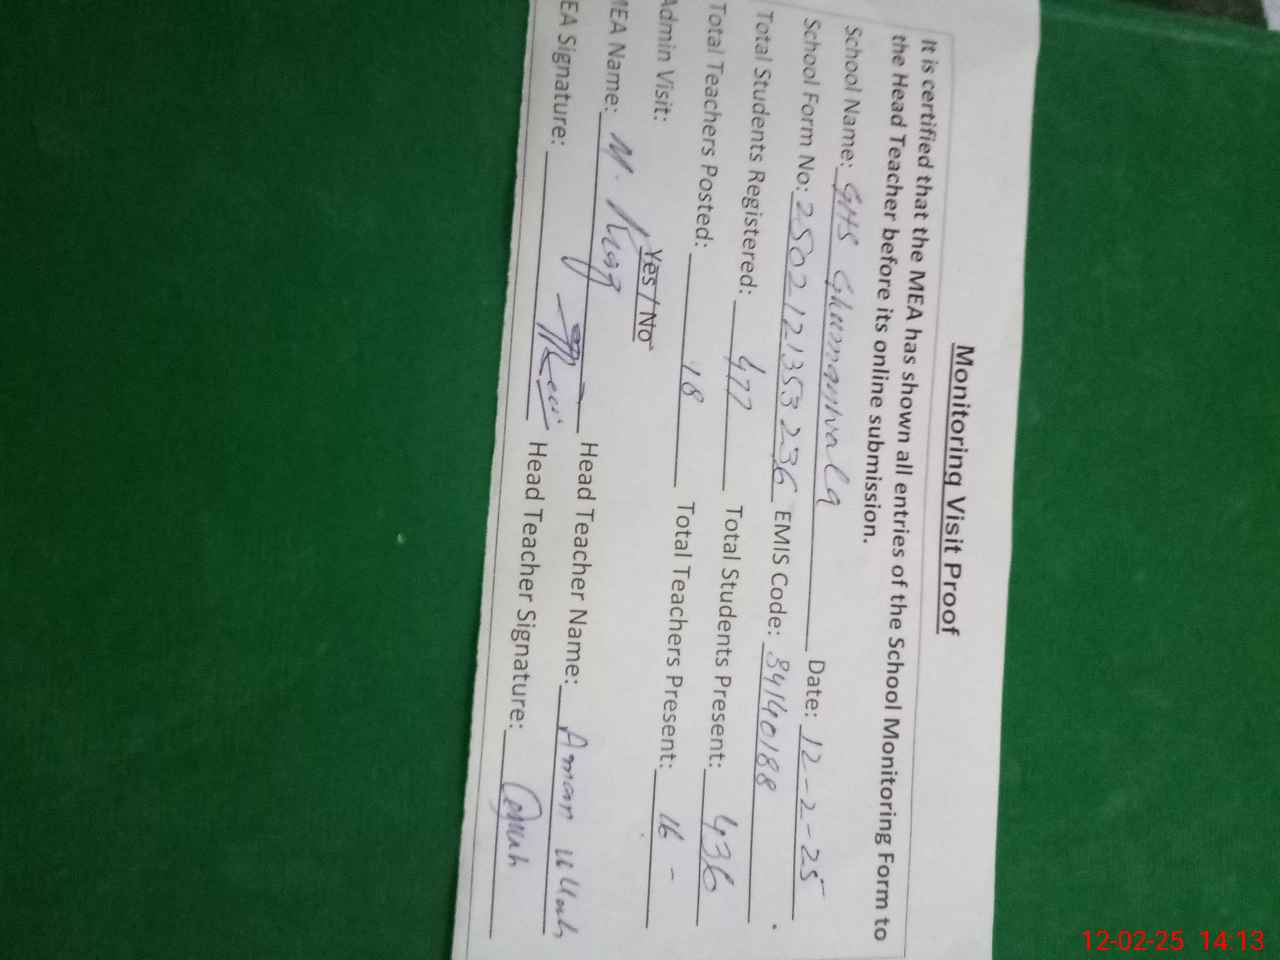 Monitoring Visit Proof
It is certified that the MEA has shown all entries of the School Monitoring Form to
the Head Teacher before its online submission.
School Name: GHS Date: 12-2-25
School Form No: 2502121353236 EMIS Code: 34140188
Total Students Registered: 477 Total Students Present: 436
Total Teachers Posted: 18 Total Teachers Present: 16 -
Admin Visit: Yes / No
MEA Name: M. Head Teacher Name: Aman ullah
EA Signature: Head Teacher Signature:
12-02-25 14:13